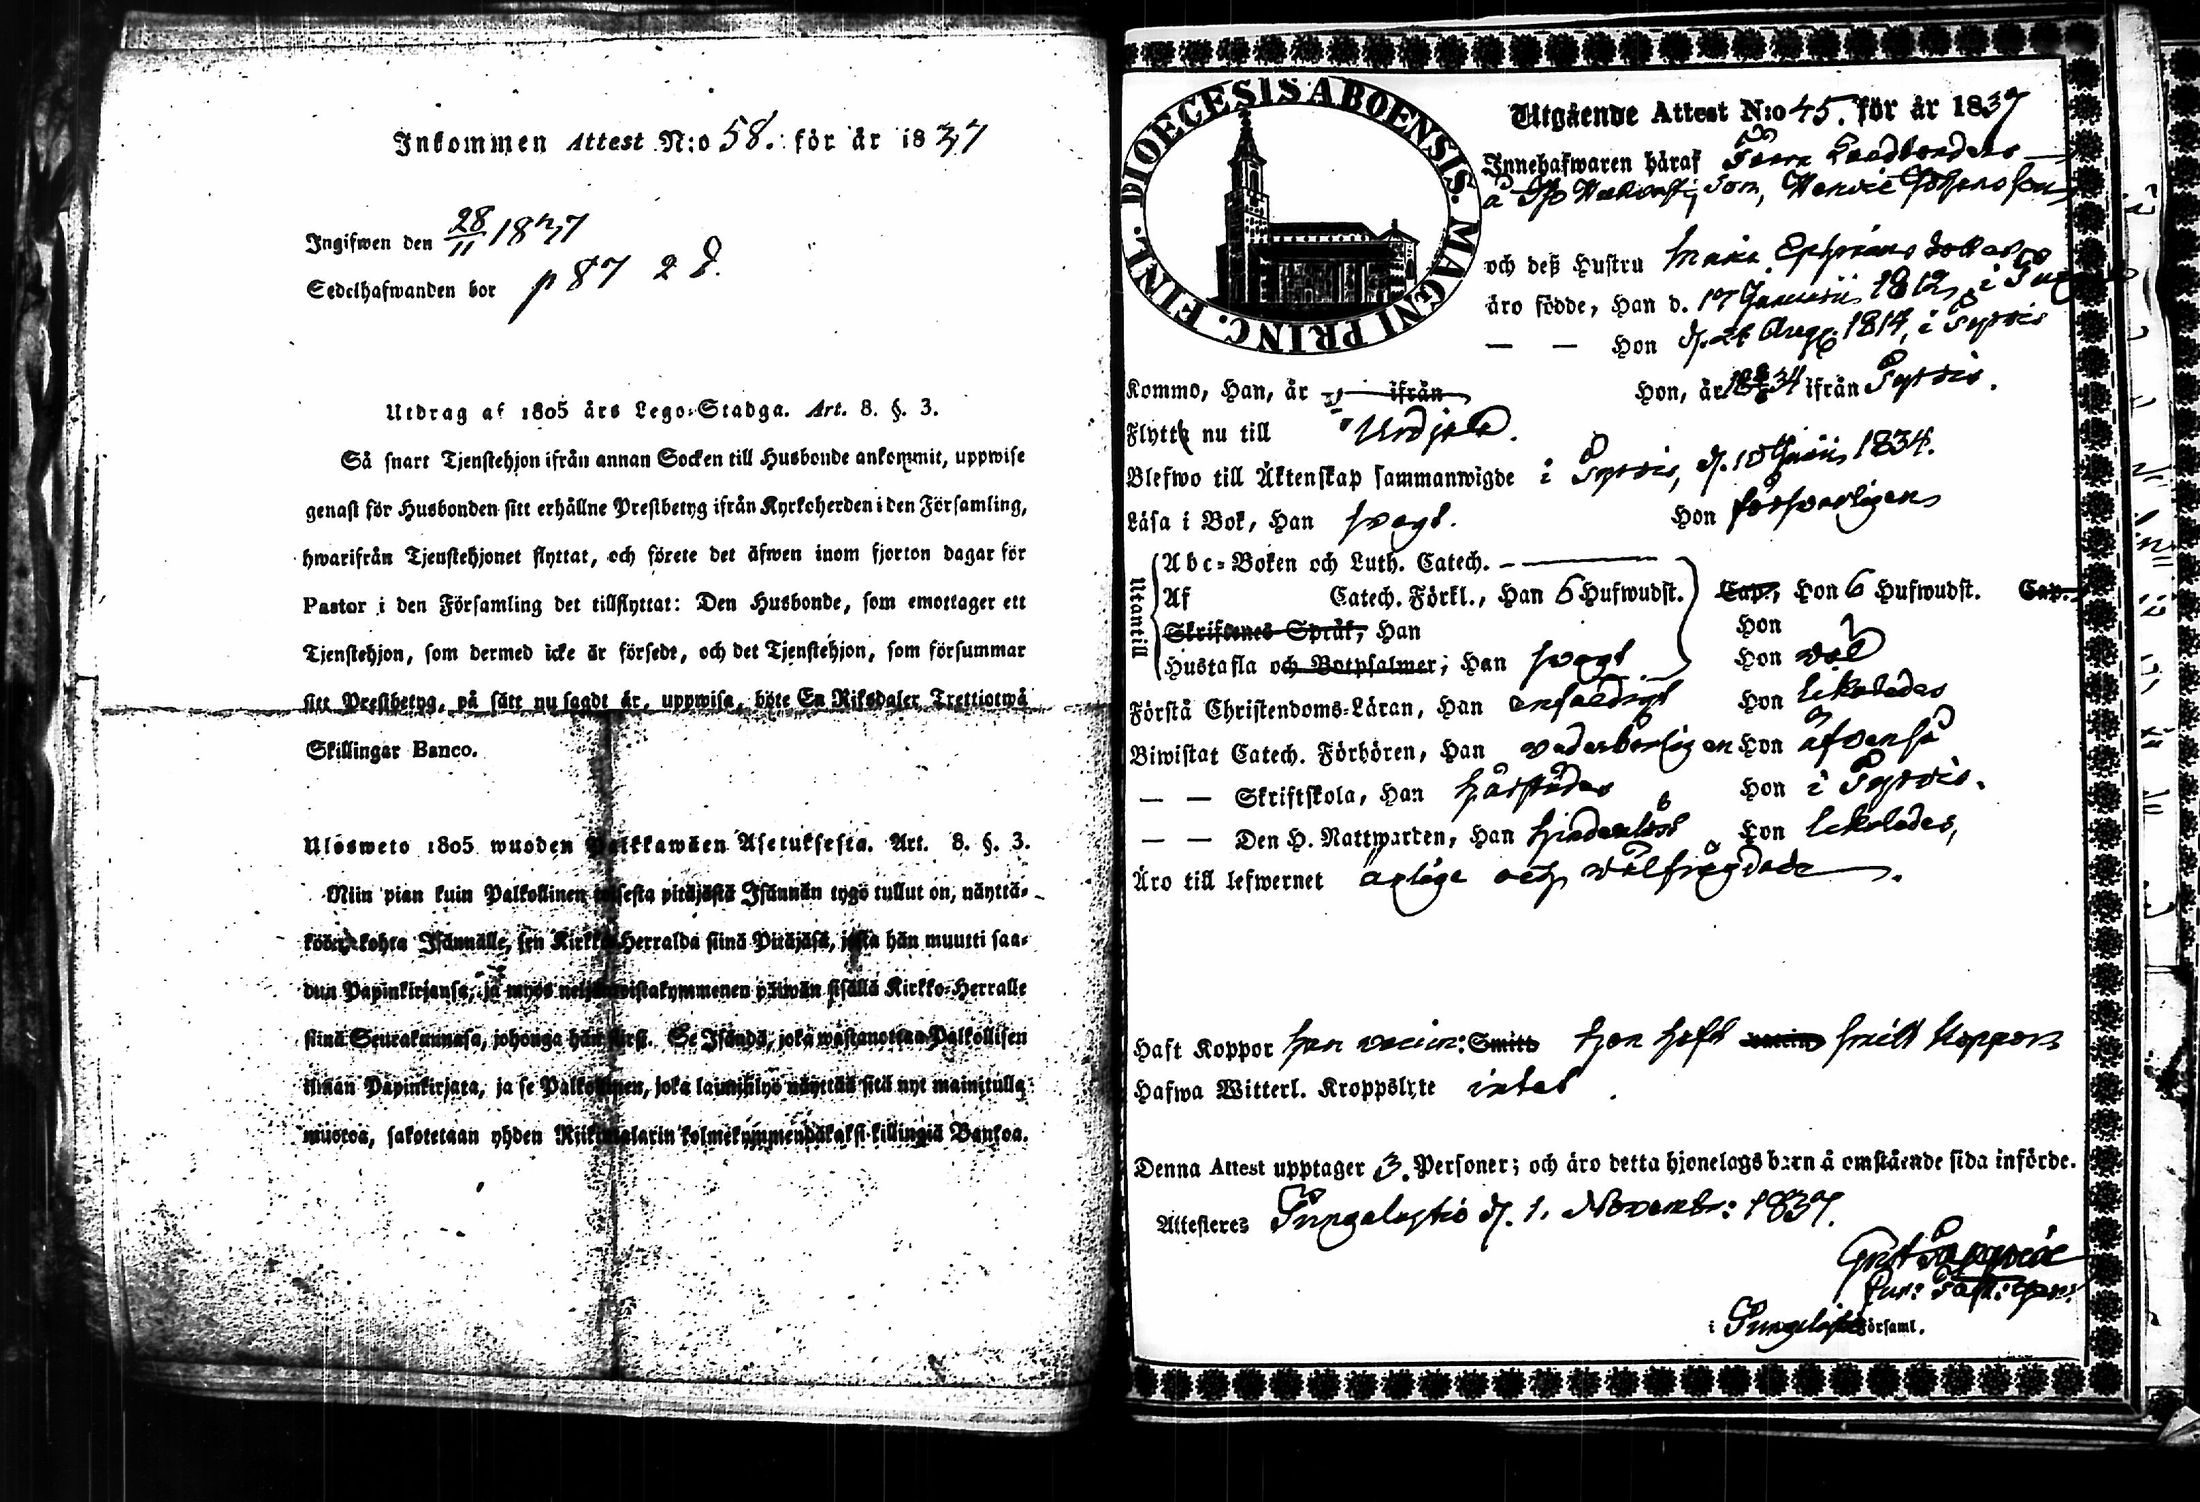 Inkommen Attest N:o 58. för år 1837
Ingifwen den 28/11 1837
Sedelhafwanden bor p 87
Utdrag af 1805 års Lego-Stadga. Art. 8. §. 3.
Så snart Tjenstehjon ifrån annan Socken till Husbonde ankommit, uppwise
genast för Husbonden sitt erhållne Prestbetyg ifrån Kyrkoherden i den Församling,
hwarifrån Tjenstehjonet flyttat, och förete det äfwen inom fjorton dagar för
Pastor i den Församling det tillflyttat: Den Husbonde, som emottager ett
Tjenstehjon, som dermed icke är försedt, och det Tjenstehjon, som försummar
sitt Prestbetyg, på sätt nu sagdt är, uppwisa, böte En Riksdaler Trettiotwå
Skillingar Banco.
Ulosweto 1805 wuoden Palkkawäen Asetuksesta. Art. 8. §. 3.
Niin pian kuin Palkollinen toisesta pitäjästä Isännän tygö tullut on, näyttä-
köön kohta Isännälle, sen Kirkko-Herralda siinä Pitäjäsä, josta hän muutti saa-
dun Papinkirjansa, ja myös neljäntoistakymmenen päiwän sisällä Kirkko-Herralle
siinä Seurakunnasa, johonga hän siirsi. Se Isändä, joka wastanottaa Palkollisen
ilman Papinkirjata, ja se Palkollinen, joka laiminlyö näyttää sitä nyt mainitulla
muotoa, sakotetaan yhden Riikintalarin kolmekymmendäkaksi killingiä Bankoa.
DIOECESIS ABOENSIS. MAGNI PRINC. FINL.
Utgående Attest N:o 45. för år 1837
Innehafwaren häraf Landbondens
å Son, Henric Johansson
och deß Hustru Maria Ephraims dotter
äro födde, Han d. 17 Januarii 1812, i
— — Hon d. Aug. 1814, i Tyrvis
Kommo, Han, år — ifrån Hon, år 1834 ifrån Tyrvis.
Flytta nu till Urdjala.
Blefwo till Äktenskap sammanwigde i Tyrvis, d. Junii 1834.
Läsa i Bok, Han svagt. Hon försvarligen
Utantill
Abc-Boken och Luth. Catech. —
Af Catech. Förkl., Han 6 Hufwudst. Cap., Hon 6 Hufwudst. Cap.
Skriftenes Språk, Han Hon
Hustafla och Botpsalmer; Han svagt Hon väl
Förstå Christendoms-Läran, Han enfaldigt Hon likaledes
Biwistat Catech. Förhören, Han vederbörligen Hon äfvenså
— — Skriftskola, Han härstädes Hon i Tyrvis.
— — Den H. Nattwarden, Han hinderlöst Hon likaledes,
Äro till lefwernet ärlige och välfrägdade.
Haft Koppor han vaccin: Smitt hon haft smitt koppor
Hafwa Witterl. Kroppslyte intet
Denna Attest upptager 3. Personer; och äro detta hjonelags barn å omstående sida införde.
Attesteres Pungalaitio d. 1. Novembr: 1837.
i Församl.